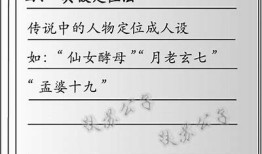 传说中的人物定位成人设
如：“仙女酵母”“月老玄七”
“孟婆十九”
扶苏公子
扶苏公子